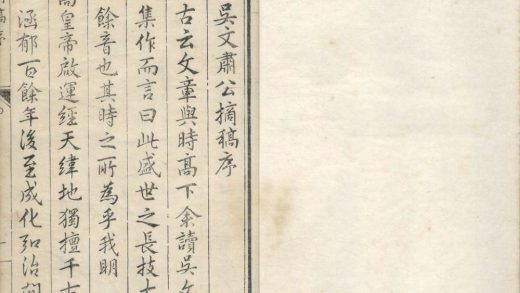 吳文肅公摘稿序
古云文章與時高下余讀吳文
集作而言曰此盛世之長技
餘音也其時之所為乎我明
高皇帝啟運經天緯地獨擅千古
涵郁百餘年後至成化弘治間
稿序